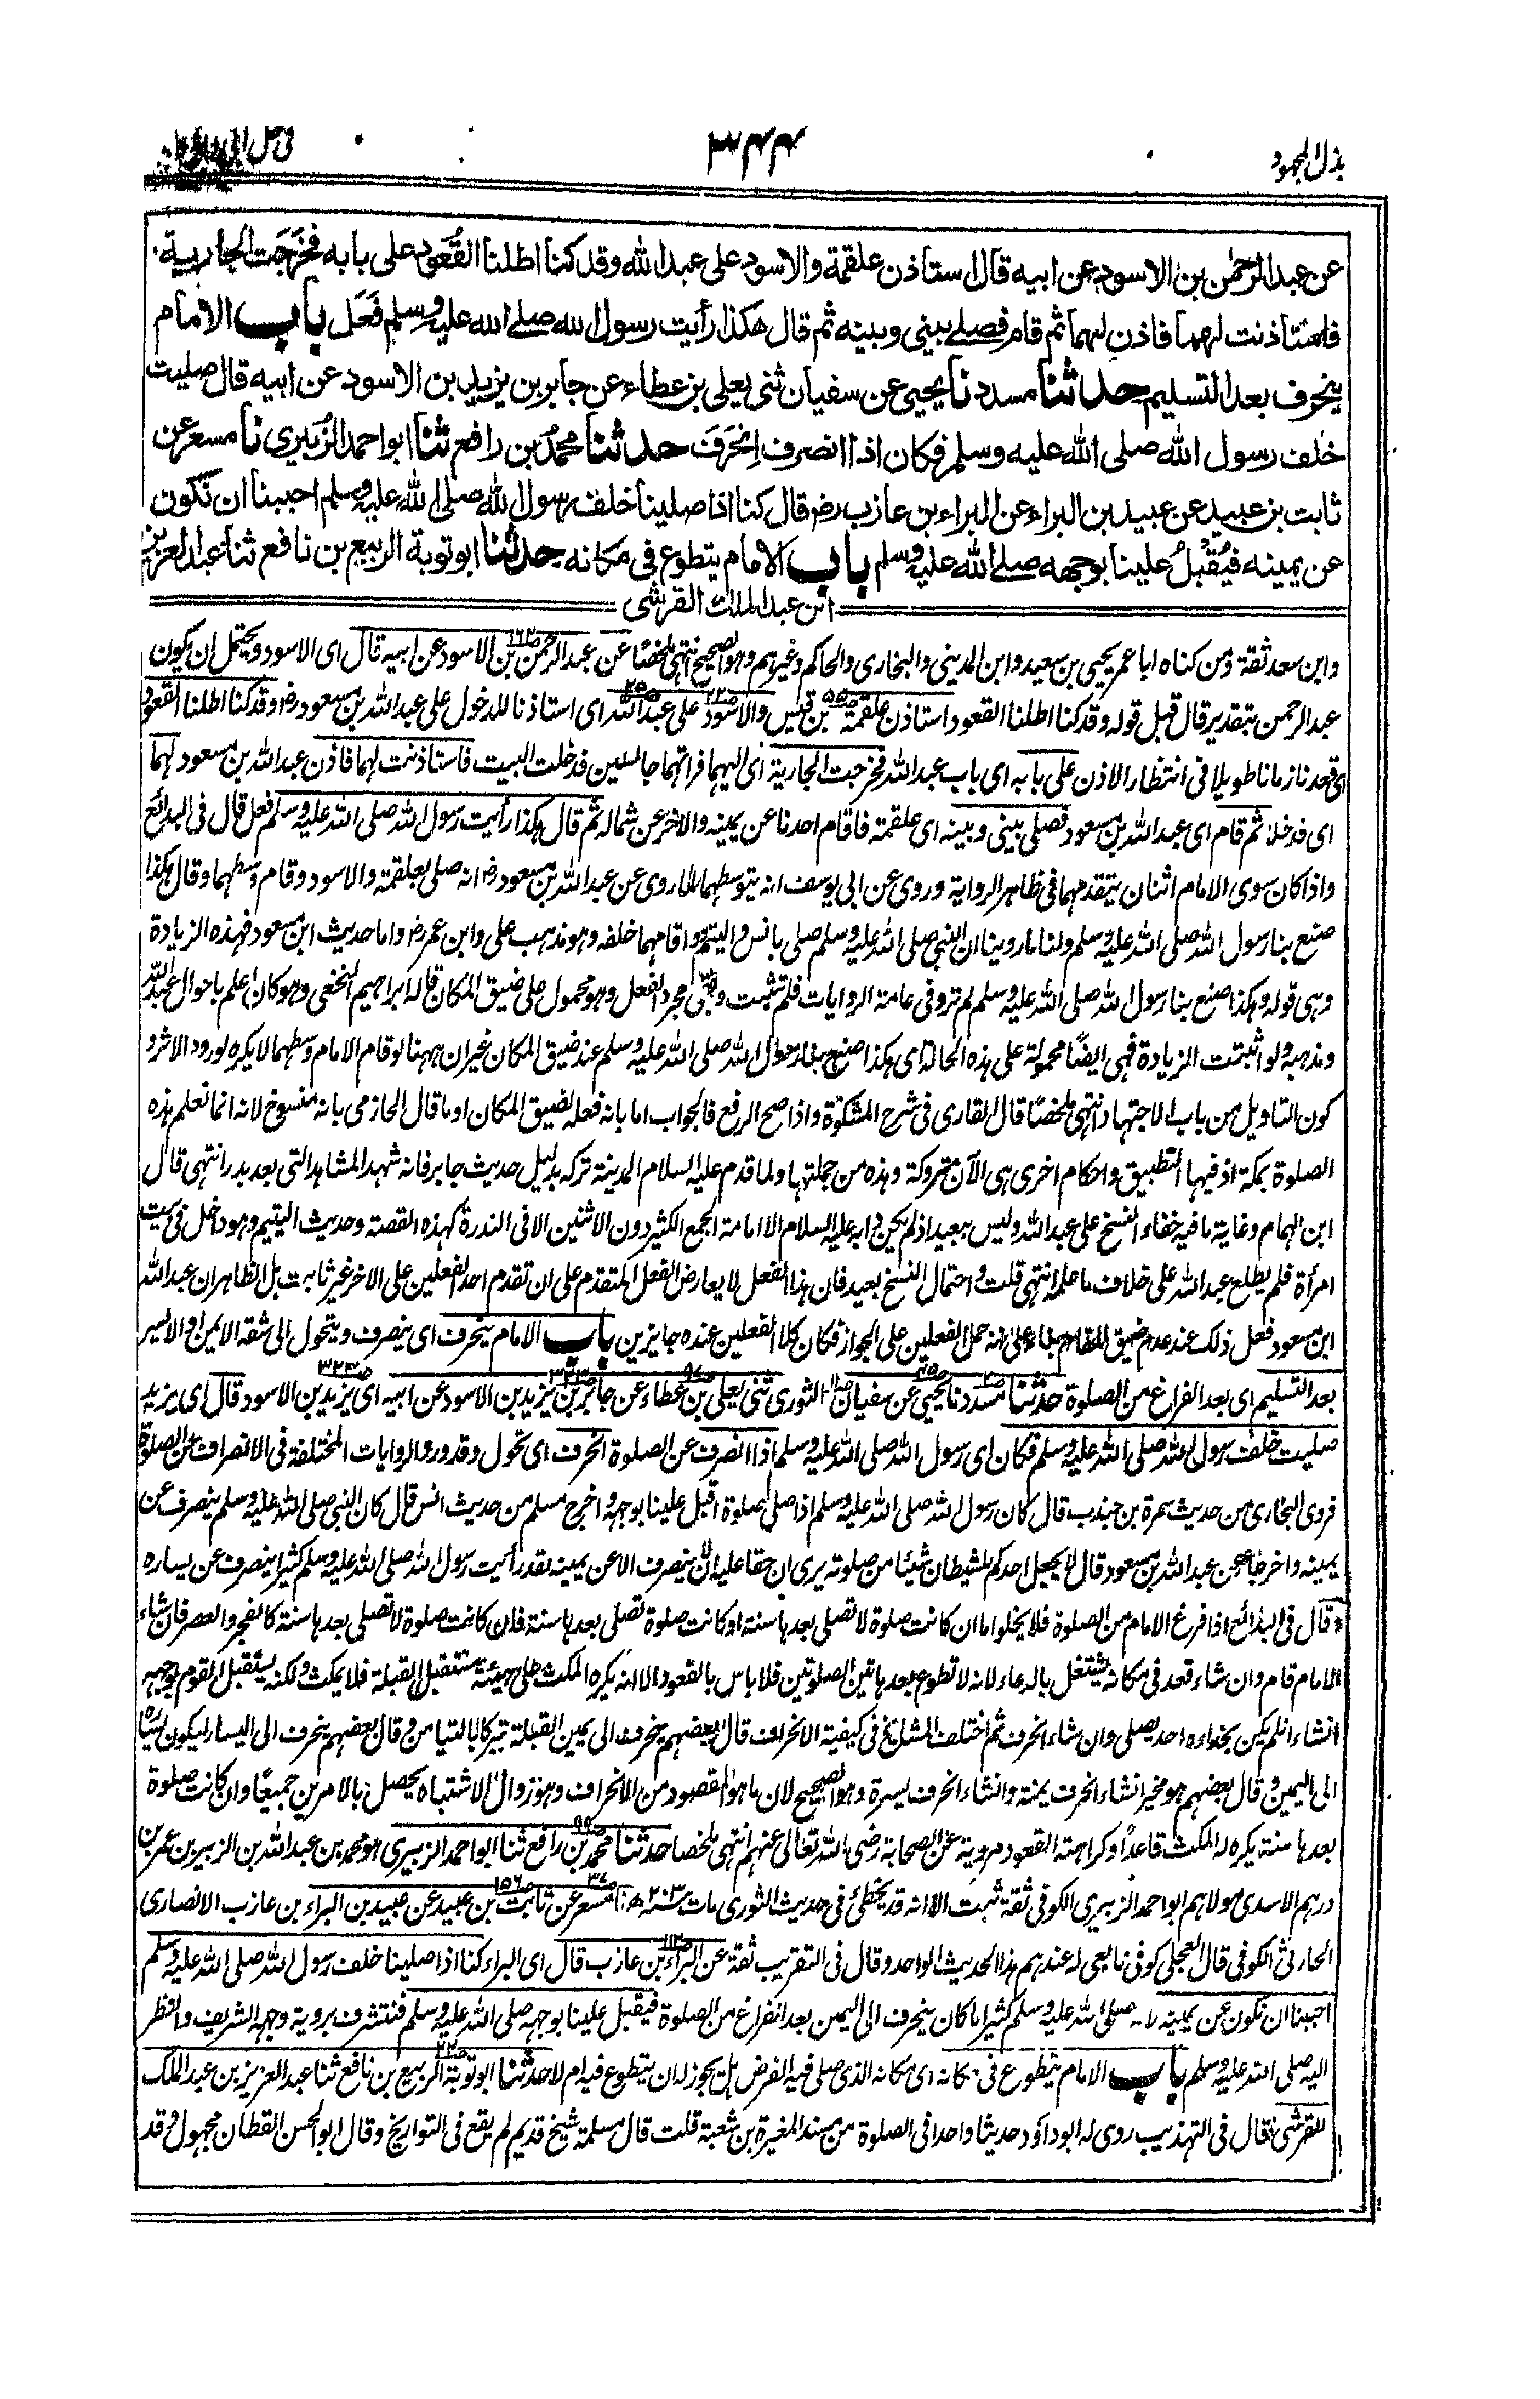 بذل المجهود
٣٤٤
في حل
عن عبد الرحمٰن بن الاسود عن ابيه قال استاذن علقمة والاسود على عبد الله وقد كنا اطلنا القُعُود على بابه فَخَرَجَت الجارية
فاستاذنت لهما فاذن لهما ثم قام فصلے بيني وبينه ثم قال هكذا رأيت رسول الله صلے الله عليه وسلم فَعَل باب الامام
ينحرف بعد التسليم حدثنا مسدد نا يحيى عن سفيان ثنى يعلى بن عطاء عن جابر بن يزيد بن الاسود عن ابيه قال صليت
خلف رسول الله صلى الله عليه وسلم فكان اذا انصرف اِنحَرَفَ حدثنا محمدُ بن رافع ثنا ابو احمد الزُبيري نا مسعر عن
ثابت بن عبيد عن عبيد بن البراء عن البراء بن عازب رض قال كنا اذا صلينا خلف رسول الله صلى الله عليه وسلم احببنا ان نكون
عن يمينه فيُقْبِلُ علينا بوجهه صلے الله عليه وسلم باب الامام يتطوع في مكانه حدثنا ابو توبة الربيع بن نافع ثنا عبد العزيز
ابن عبد الملك القرشي
وابن سعد ثقة ومن كناه ابا عمر يحيى بن سعيد وابن المديني والبخاري والحاكم وغيرهم وهو الصحيح انتهى ملخصًا عن عبد الرحمن بن الاسود عن ابيه قال اى الاسود ويحتمل ان يكون
عبد الرحمن بتقدير قال قبل قوله وقد كنا اطلنا القعود استاذن علقمة بن قيس والاسود على عبد الله اى استاذنا للدخول على عبد الله بن مسعود رض وقد كنا اطلنا القعود
اى قعدنا زمانا طويلا فى انتظار الاذن على بابه اى باب عبد الله فخرجت الجارية اى اليهما فرأتهما جالسين فدخلت البيت فاستاذنت لهما فاذن عبد الله بن مسعود لهما
اى فدخلا ثم قام اى عبد الله بن مسعود فصلى بينى وبينه اى علقمة فاقام احدنا عن يمينه والآخر عن شماله ثم قال هكذا رأيت رسول الله صلى الله عليه وسلم فعل قال فى البدائع
واذا كان سوى الامام اثنان يتقدمهما فى ظاهر الرواية وروى عن ابى يوسف انه يتوسطهما لما روى عن عبد الله بن مسعود رض انه صلى بعلقمة والاسود وقام وسطهما وقال هكذا
صنع بنا رسول الله صلى الله عليه وسلم ولنا ما روينا ان النبى صلى الله عليه وسلم صلى بانس واليتيم واقامهما خلفه وهو مذهب على وابن عمر رض واما حديث ابن مسعود فهذه الزيادة
وهى قوله وهكذا صنع بنا رسول الله صلى الله عليه وسلم لم ترو فى عامة الروايات فلم تثبت وبقى مجرد الفعل وهو محمول على ضيق المكان قاله ابراهيم النخعى وهو كان اعلم باحوال عبد الله
ومذهبه ولو ثبتت الزيادة فهى ايضًا محمولة على هذه الحالة اى هكذا صنع بنا رسول الله صلى الله عليه وسلم عند ضيق المكان غير ان ههنا لو قام الامام وسطهما لا يكره لورود الاثر و
كون التاويل من باب الاجتهاد انتهى ملخصًا قال القارى فى شرح المشكوة واذا صح الرفع فالجواب اما بانه فعله لضيق المكان او ما قال الحازمى بانه منسوخ لانه انما تعلم هذه
الصلوة بمكة اذ فيها التطبيق واحكام اخرى هى الآن متروكة وهذه من جملتها ولما قدم عليه السلام المدينة تركه بدليل حديث جابر فانه شهد المشاهد التى بعد بدر انتهى قال
ابن الهمام وغاية ما فيه خفاء النسخ على عبد الله وليس ببعيد اذ لم يكن دابه عليه السلام الا امامة الجمع الكثير دون الاثنين الا فى الندرة كهذه القصة وحديث اليتيم وهو داخل فى بيت
امرأة فلم يطلع عبد الله على خلاف ما علمه انتهى قلت واحتمال النسخ بعيد فان هذا الفعل لا يعارض الفعل المتقدم على ان تقدم احد الفعلين على الآخر غير ثابت بل الظاهر ان عبد الله
ابن مسعود فعل ذلك عند عدم ضيق المقام بناء على انه حمل الفعلين على الجواز فكان كلا الفعلين عنده جايزين باب الامام ينحرف اى ينصرف ويتحول الى شقه الايمن او الايسر
بعد التسليم اى بعد الفراغ من الصلوة حدثنا مسدد نا يحيى عن سفيان الثورى ثنى يعلى بن عطاء عن جابر بن يزيد بن الاسود عن ابيه اى يزيد بن الاسود قال اى يزيد
صليت خلف رسول الله صلى الله عليه وسلم فكان اى رسول الله صلى الله عليه وسلم اذا انصرف عن الصلوة انحرف اى تحول وقد ورد الروايات المختلفة فى الانصراف عن الصلوة
فروى البخارى من حديث سمرة بن جندب قال كان رسول الله صلى الله عليه وسلم اذا صلى صلوة اقبل علينا بوجهه واخرج مسلم من حديث انس قال كان النبى صلى الله عليه وسلم ينصرف عن
يمينه واخرجا عن عبد الله بن مسعود قال لا يجعل احدكم للشيطان شيئا من صلوته يرى ان حقا عليه ان لا ينصرف الا عن يمينه لقد رأيت رسول الله صلى الله عليه وسلم كثيرا ينصرف عن يساره
قال فى البدائع اذا فرغ الامام من الصلوة فلا يخلو اما ان كانت صلوة لا تصلى بعدها سنة او كانت صلوة تصلى بعدها سنة فان كانت صلوة لا تصلى بعدها سنة كالفجر والعصر فان شاء
الامام قام وان شاء قعد فى مكانه يشتغل بالدعاء لانه لا تطوع بعد هاتين الصلوتين فلا باس بالقعود الا انه يكره المكث على هيئته مستقبل القبلة فلا يمكث ولكنه يستقبل القوم بوجهه
انشاء ان لم يكن بحذاءه احد يصلى وان شاء انحرف ثم اختلف المشائخ فى كيفية الانحراف قال بعضهم ينحرف الى يمين القبلة تبركا بالتيامن وقال بعضهم ينحرف الى اليسار ليكون يساره
الى اليمين وقال بعضهم هو مخير انشاء انحرف يمنة وانشاء انحرف يسرة وهو الصحيح لان ما هو المقصود من الانحراف وهو زوال الاشتباه يحصل بالامرين جميعًا وان كانت صلوة
بعدها سنة يكره له المكث قاعدًا وكراهة القعود مروية عن الصحابة رضى الله تعالى عنهم انتهى ملخصا حدثنا محمد بن رافع ثنا ابو احمد الزبيرى هو محمد بن عبد الله بن الزبير بن عمر بن
درهم الاسدى مولاهم ابو احمد الزبيرى الكوفى ثقة ثبت الا انه قد يخطئ فى حديث الثورى مات سنة ٢٠٣ھ نا مسعر عن ثابت بن عبيد عن عبيد بن البراء بن عازب الانصارى
الحارثى الكوفى قال العجلى كوفى تابعى له عندهم هذا الحديث الواحد وقال فى التقريب ثقة عن البراء بن عازب قال اى البراء كنا اذا صلينا خلف رسول الله صلى الله عليه وسلم
احببنا ان نكون عن يمينه صلى الله عليه وسلم كثيرا ما كان ينحرف الى اليمين بعد الفراغ من الصلوة فيقبل علينا بوجهه صلى الله عليه وسلم فنتشرف بروية وجهه الشريف والنظر
اليه صلى الله عليه وسلم باب الامام يتطوع فى مكانه اى مكانه الذى صلى فيه الفرض هل يجوز له ان يتطوع فيه ام لا حدثنا ابو توبة الربيع بن نافع ثنا عبد العزيز بن عبد الملك
القرشى قال فى التهذيب روى له ابو داؤد حديثا واحدا فى الصلوة من مسند المغيرة بن شعبة قلت قال مسلمة شيخ قديم لم يقع فى التواريخ وقال ابو الحسن القطان مجهول وقد